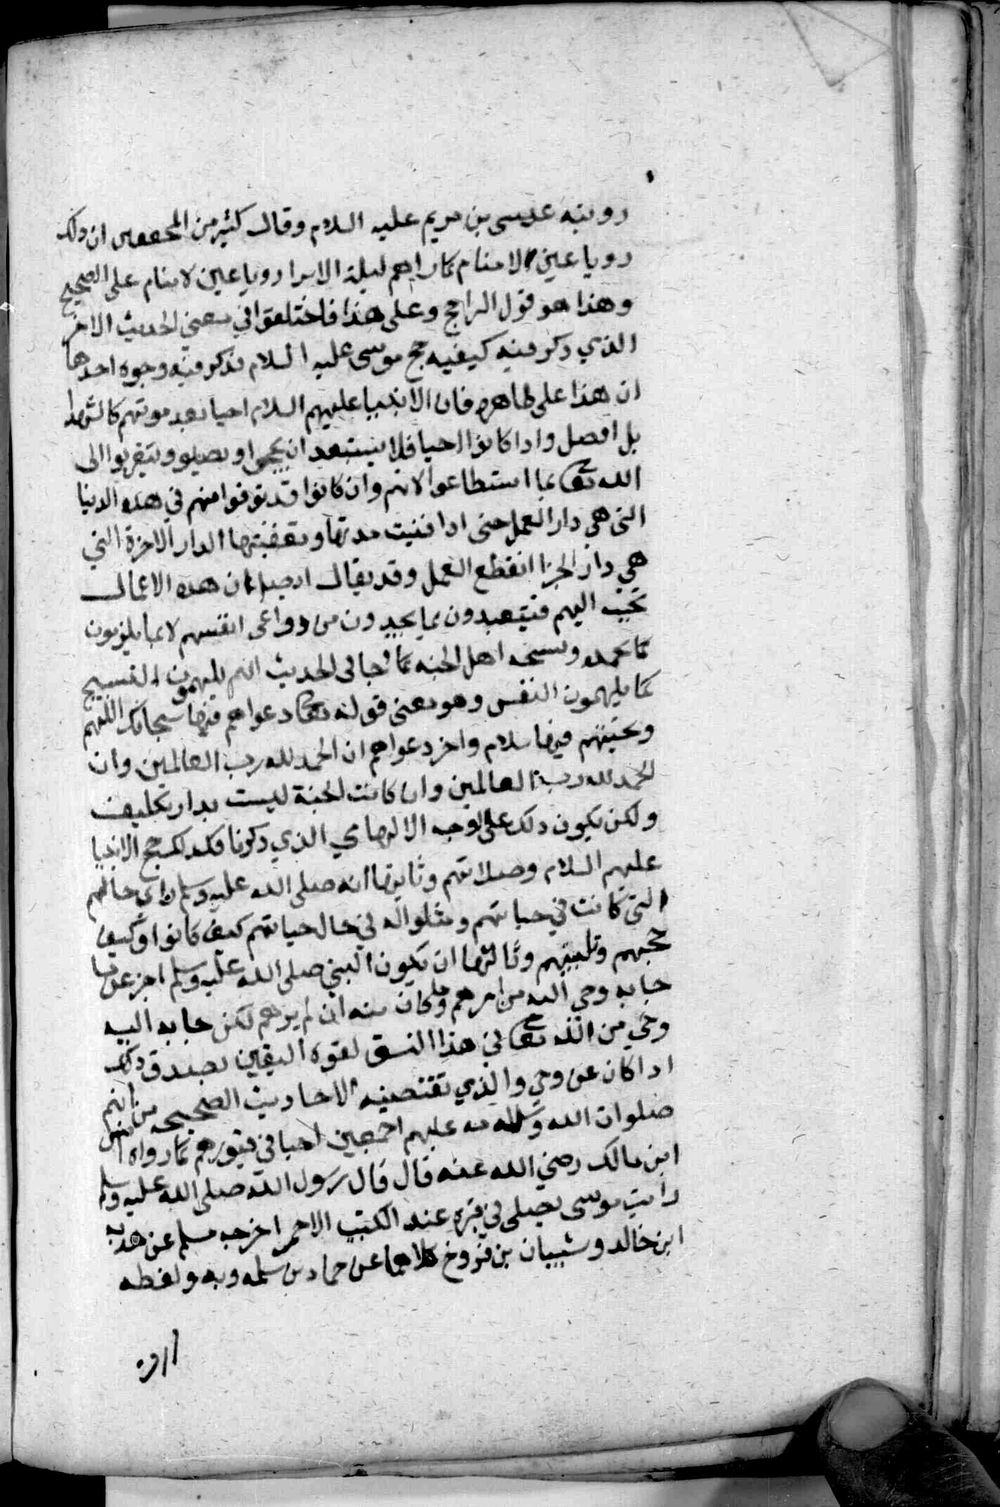 رويته عيسى بن مريم عليه السلام وقال كثير من المحققين ان ذلك
رويا عين لا منام كما راهم ليلة الاسرا رويا عين لا منام على الصحيح
وهذا هو قول الراجح وعلى هذا فاختلفوا في معنى الحديث الاخر
الذي ذكر فيه كيفيه حج موسى عليه السلام فذكر فيه وجوه احدها
ان هذا على ظاهره فان الانبيا عليهم السلام احيا بعد موتهم كالشهدا
بل افضل واذا كانوا احيا فلا يستبعد ان يحجوا ويصلو ويتقربوا الى
الله تعالى بما استطاعوا لانهم وان كانوا قد توفوا منهم في هذه الدنيا
التي هي دار العمل حتى اذا فنيت مدتها وتعقبتها الدار الاخرة التي
هي دار الجزا انقطع العمل وقد يقال ان هذه الاعمال
تحبب اليهم فيتعبدون بما يجدون من دواعي انفسهم لا بما يلزمون
كما يحمده ويسبحه اهل الجنه كما جا في الحديث انهم يلهمون التسبيح
كما يلهمون النفس وهو معنى قوله تعالى دعواهم فيها سبحانك اللهم
وتحيتهم فيها سلام واخر دعواهم ان الحمد لله رب العالمين وان
الحمد لله رب العالمين وان كانت الجنة ليست بدار تكليف
ولكن يكون ذلك على الوجه الالهامي الذي ذكرنا فكذلك حج الانبيا
عليهم السلام وصلاتهم وثانيها انه صلى الله عليه وسلم راى حالهم
التي كانت في حياتهم ومثلوا له في حال حياتهم كيف كانوا وكيف
حجهم وتلبيتهم وثالثها ان يكون النبي صلى الله عليه وسلم اخبر عن ما
جا به وحي الله من امرهم وما كان منه ان لم يرهم لكن جا به اليه
وحي من الله تعالى في هذا النسق لقوة اليقين بصدق ذلك
اذا كان عن وحي والذي تقتضيه الاحاديث الصحيحه من انهم
صلوات الله وسلامه عليهم اجمعين احيا في قبورهم كما رواه انس
ابن مالك رضي الله عنه قال قال رسول الله صلى الله عليه وسلم
رايت موسى يصلي في قبره عند الكثيب الاحمر اخرجه مسلم عن هدبه
ابن خالد وشيبان بن فروخ كلاهما عن حماد بن سلمه وبه ولفظه